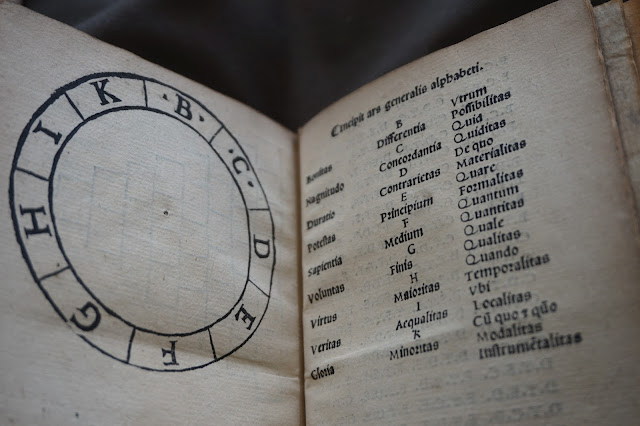 K
B
C
D
E
F
G
H
I
¶Incipit ars generalis alphabeti.
B Vtrum
Bonitas Differentia Possibilitas
C Quid
Magnitudo Concordantia Quiditas
D De quo
Duratio Contrarietas Materialitas
E Quare
Potestas Principium Formalitas
F Quantum
Sapientia Medium Quantitas
G Quale
Voluntas Finis Qualitas
H Quando
Virtus Maioritas Temporalitas
I Vbi
Veritas Aequalitas Localitas
K Cū quo ⁊ quō
Gloria Minoritas Modalitas
Instrumētalitas